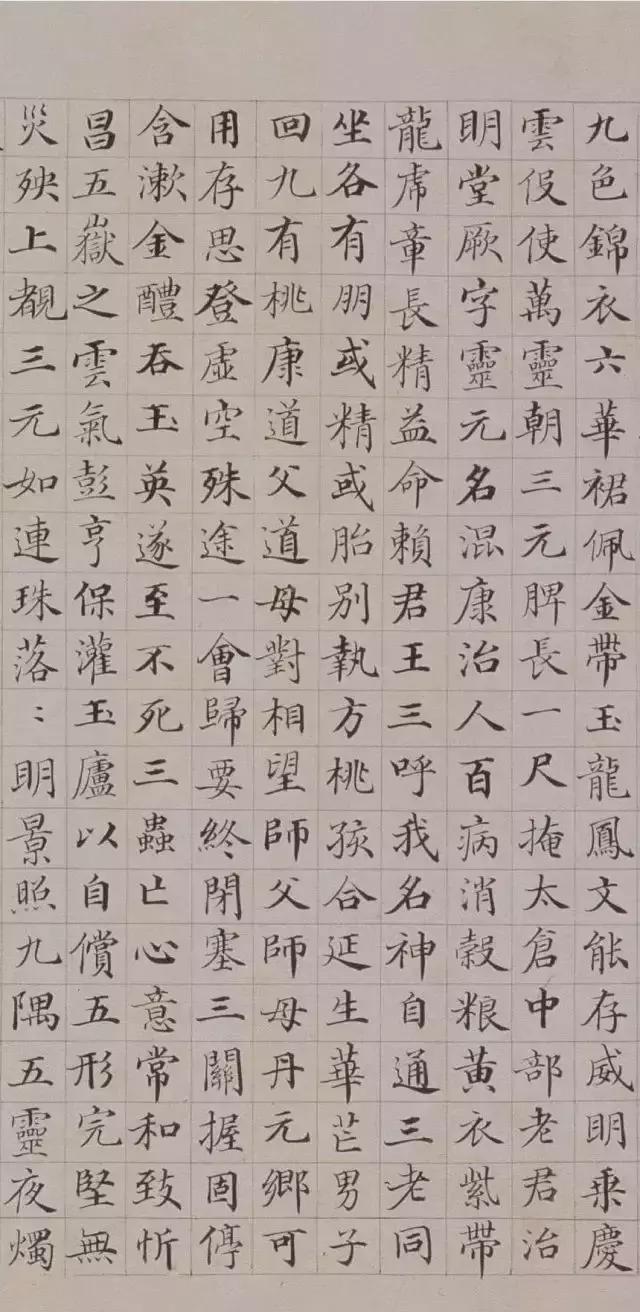 九色錦衣六華裙佩金帶玉龍鳳文能存威明乘慶
雲伇使萬靈朝三元脾長一尺掩太倉中部老君治
明堂厥字靈元名混康治人百病消穀粮黃衣紫帶
龍虎章長精益命賴君王三呼我名神自通三老同
坐各有朋或精或胎別執方桃孩合延生華芒男子
回九有桃康道父道母對相望師父師母丹元鄉可
用存思登虛空殊途一會歸要終閉塞三關握固停
含漱金醴吞玉英遂至不死三蟲亡心意常和致忻
昌五嶽之雲氣彭亨保灌玉廬以自償五形完堅無
災殃上覩三元如連珠落〻明景照九隅五靈夜燭